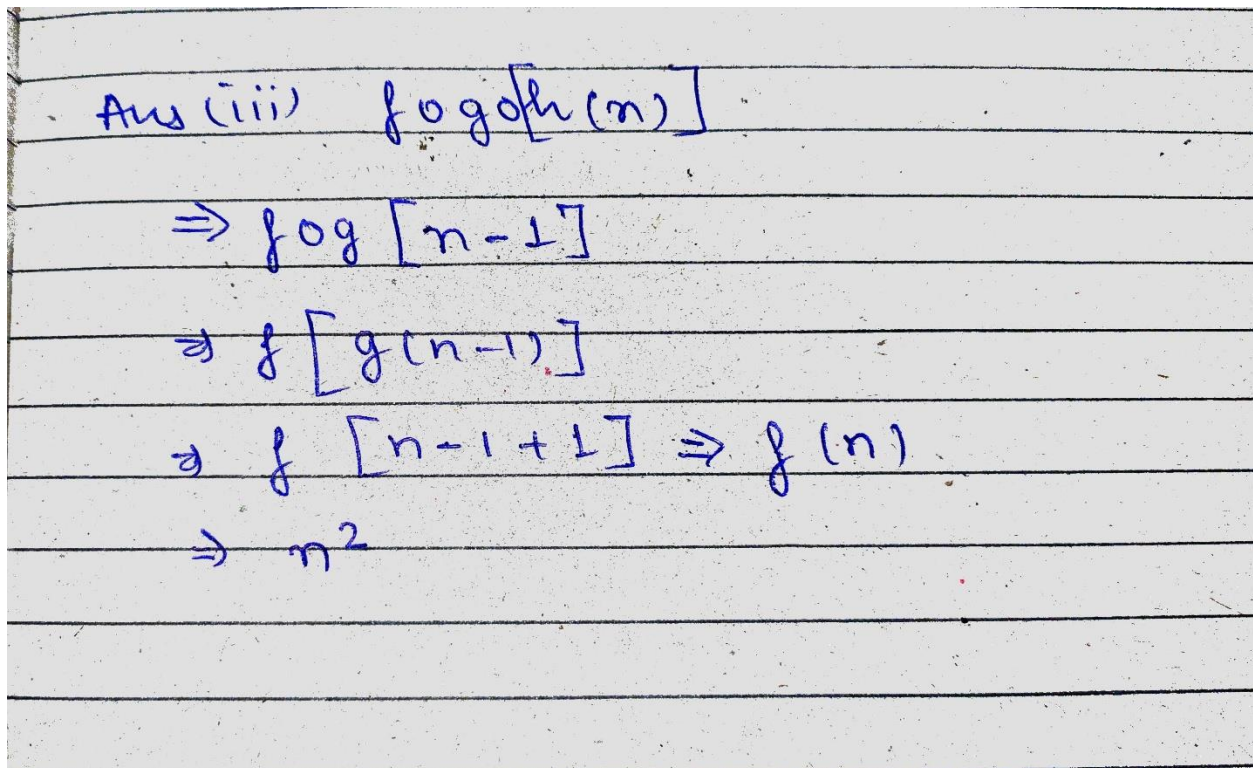 Ans (iii) fogo[h(n)]
⇒ fog [n-1]
⇒ f [g(n-1)]
⇒ f [n-1+1] ⇒ f(n)
⇒ n²